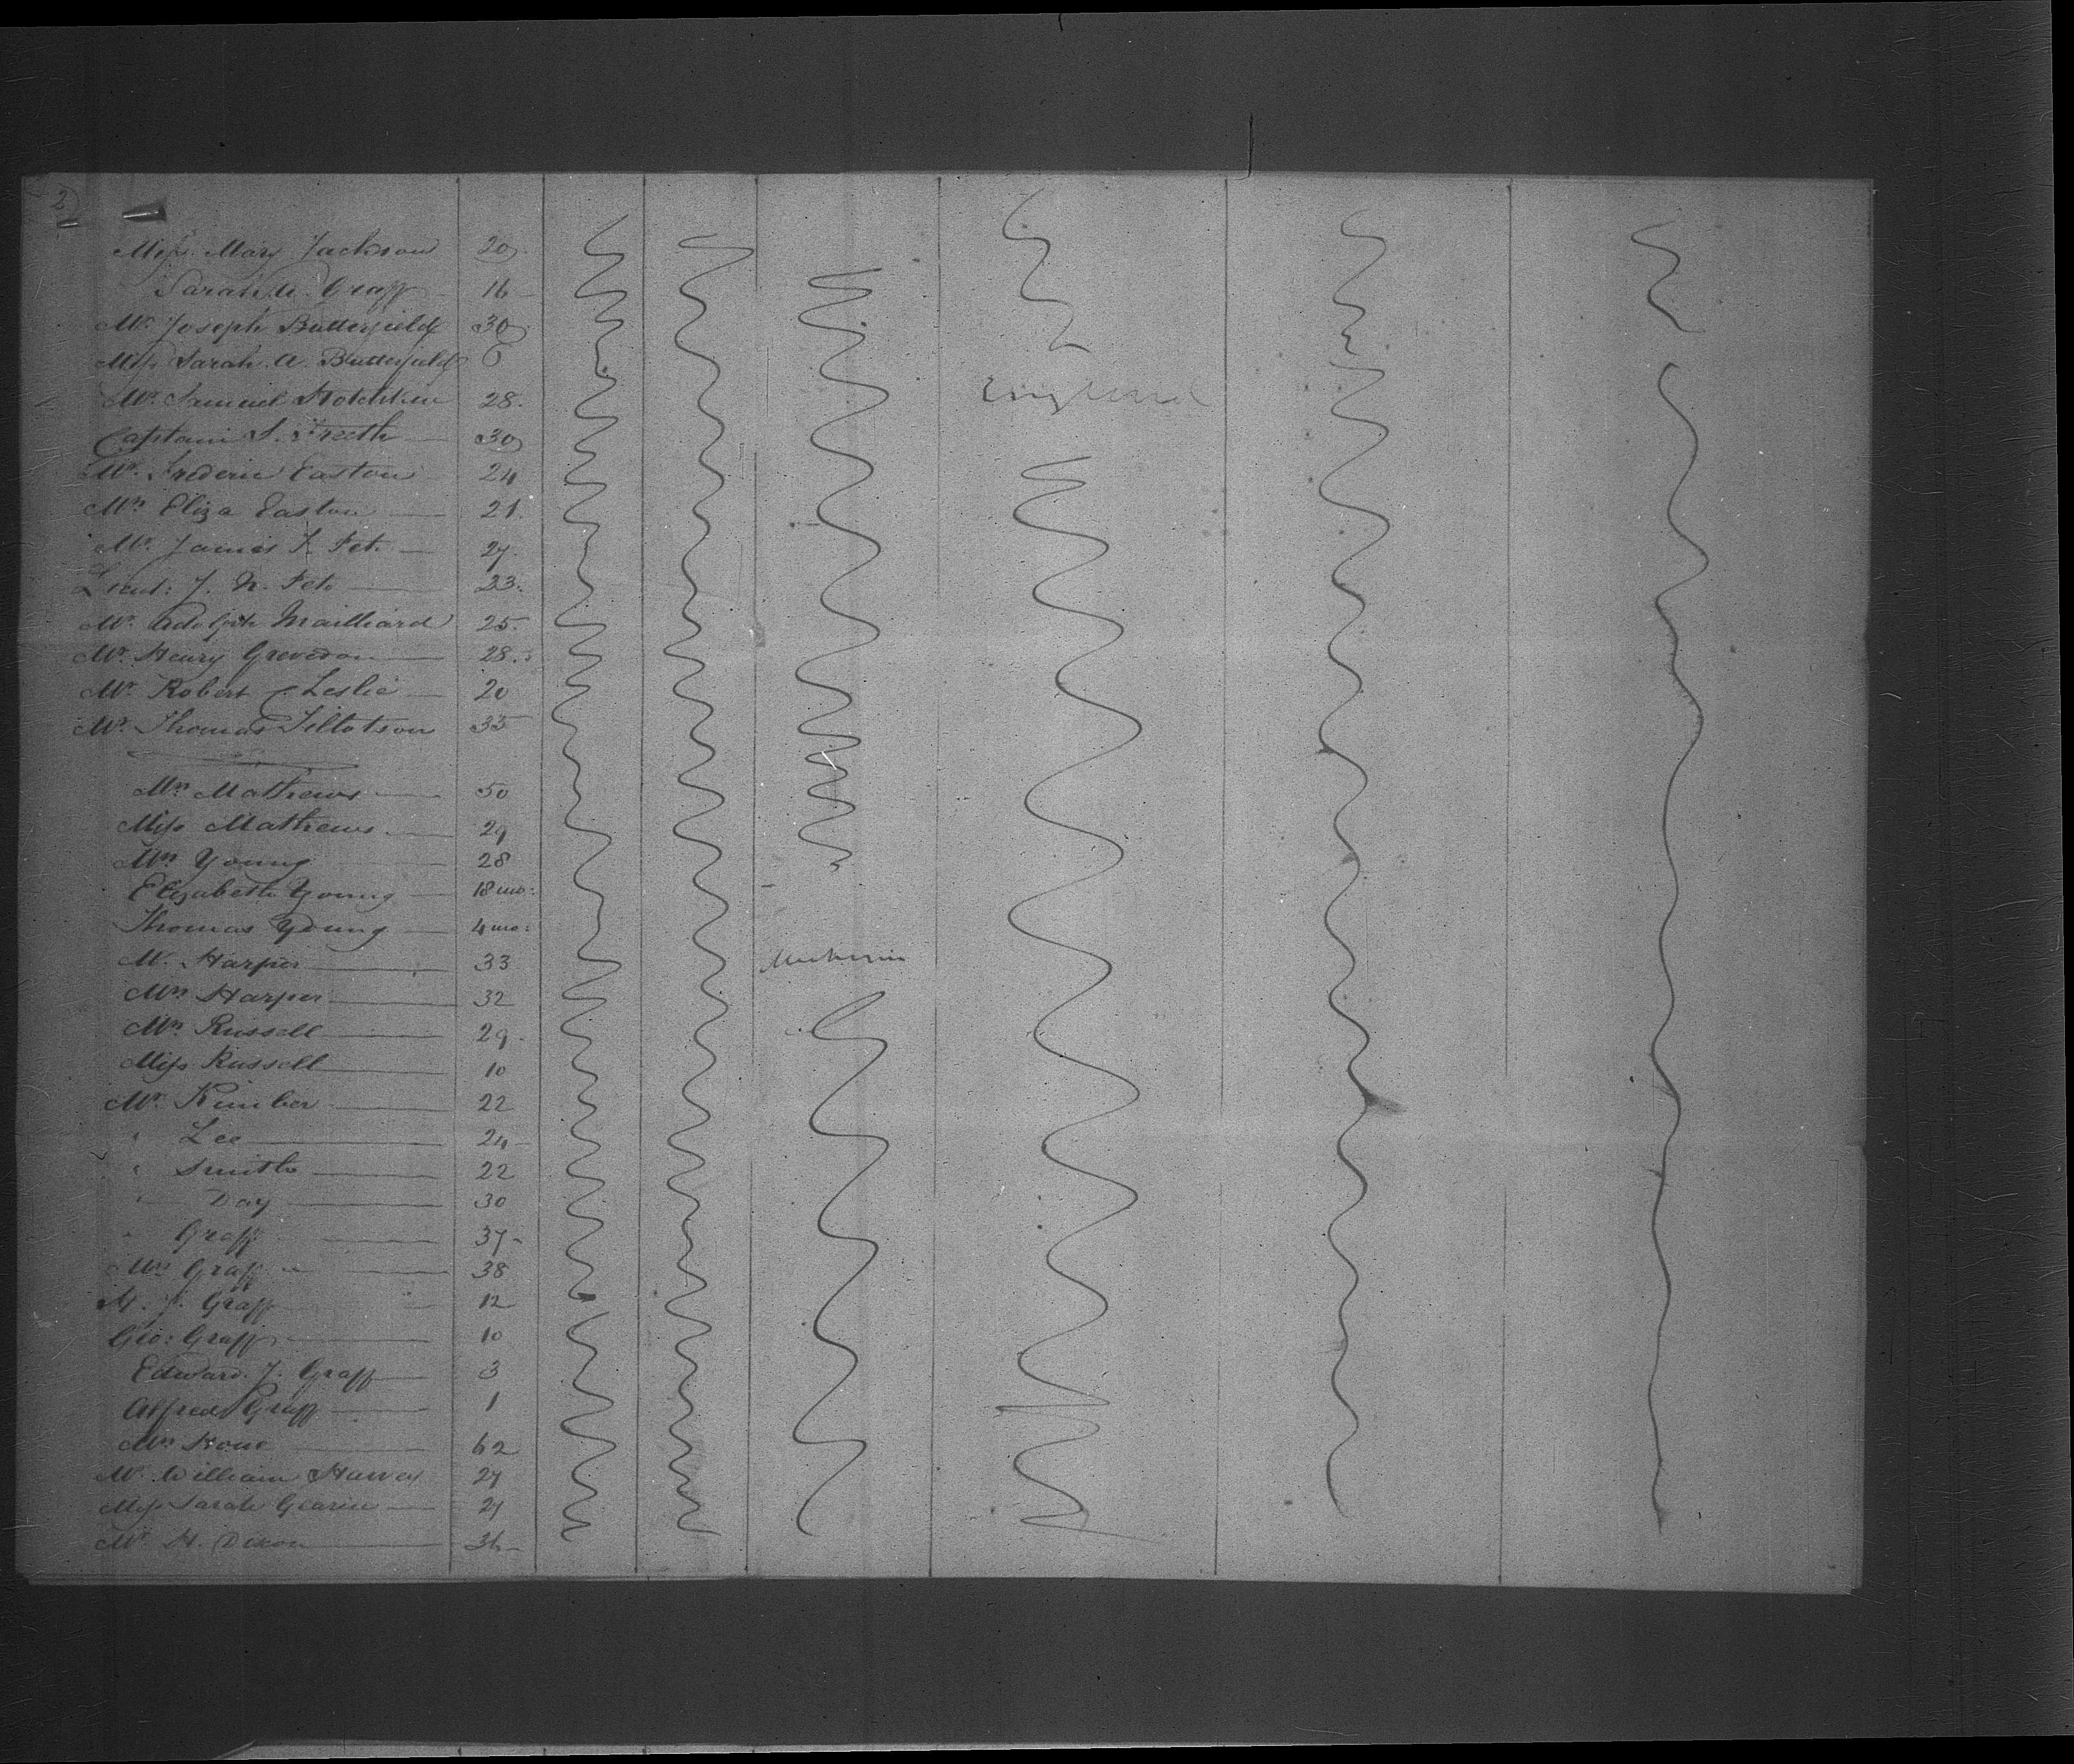 2
Miss Mary Jackson 20
Sarah A. Graff 16
Mr. Joseph Butterfield 30
Miss Sarah A. Butterfield 6
Mr. Samuel Hotchkin 28. England
Captain S. Freeth 30
Mr. Frederic Easton 24
Mrs Eliza Easton 21.
Mr. James Fet 27.
Lieut: J. N. Fet 23.
Mr. Adolph Mailliard 25.
Mr. Henry Grevedon 28.
Mr Robert Leslie 20
Mr. Thomas Tillotson 35
Mrs Mathews 50
Miss Mathews 29
Mrs Young 28
Elizabeth Young 18 mo:
Thomas Young 4 mo:
M. Harper 33
Mrs Harper 32
Mrs Russell 29
Miss Russell 10
Mr. Kimber 22
" Lee 24
" Smith 22
" Day 30
" Graff 37
Mrs Graff 38
M. J. Graff 12
Geo: Graff 10
Edward J. Graff 3
Alfred Graff 1
Mrs 62
Mr. William Harvey 27
Miss Sarah 21
Mr H. Dixon 36